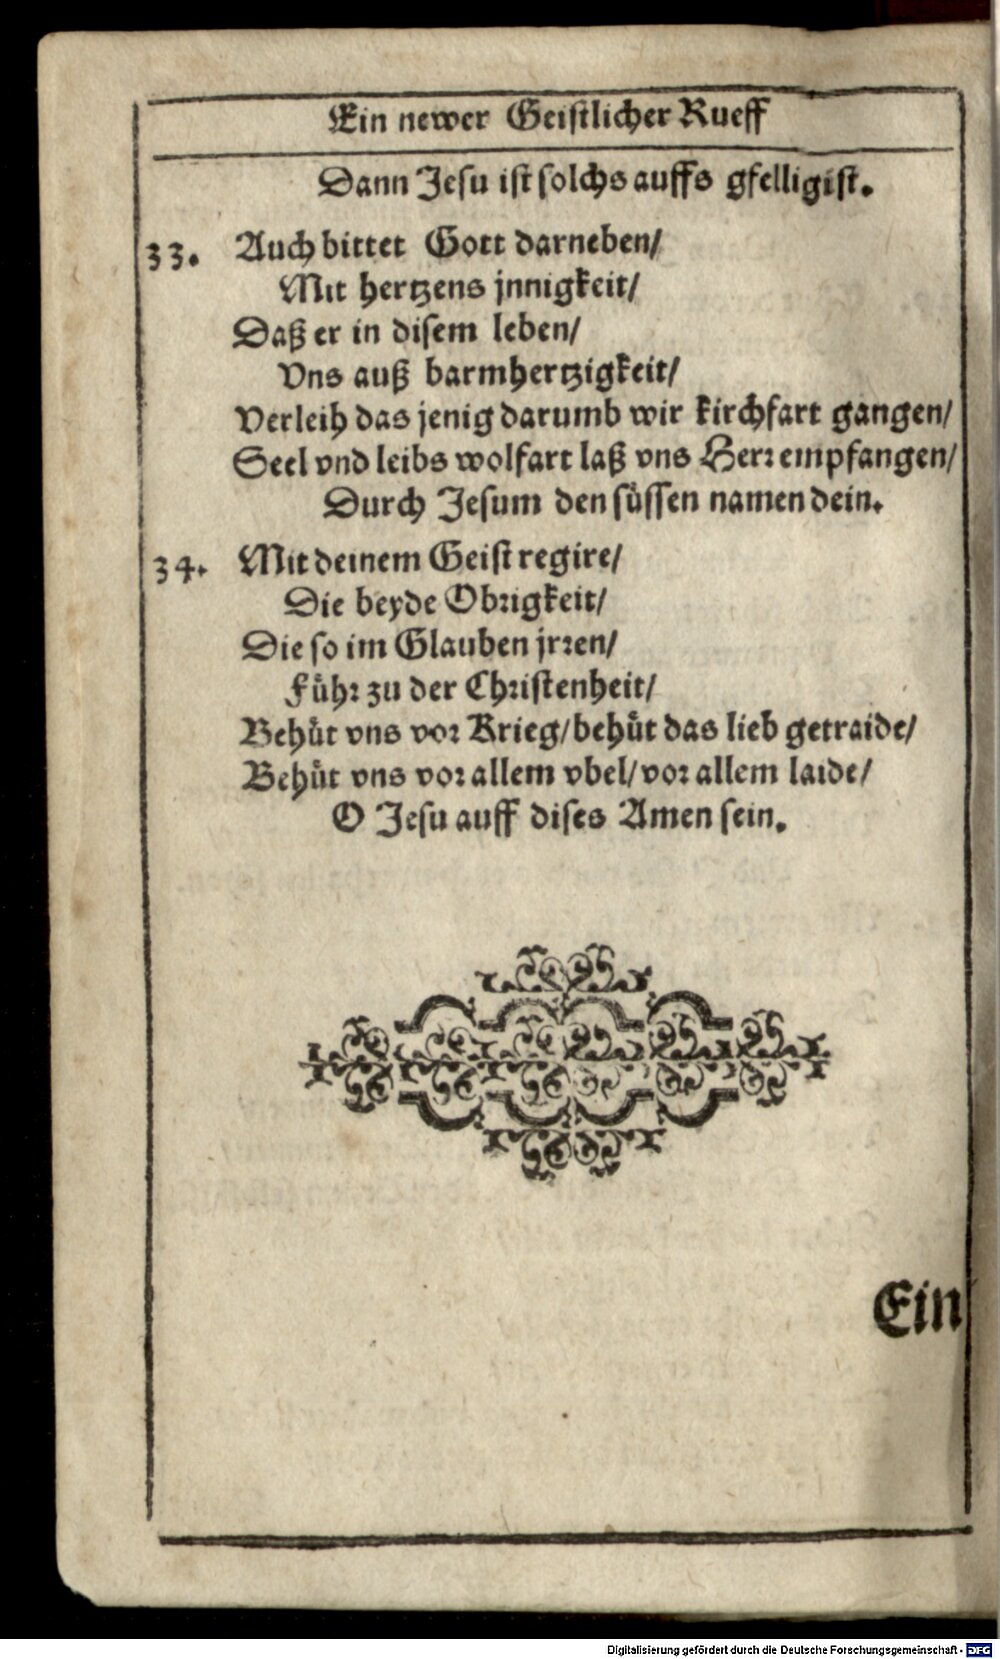 Ein newer Geistlicher Rueff
Dann Jesu ist solchs auffs gfelligist.
33. Auch bittet Gott darneben/
Mit hertzens jnnigkeit/
Daß er in disem leben/
Vns auß barmhertzigkeit/
Verleih das jenig darumb wir kirchfart gangen/
Seel vnd leibs wolfart laß vns Herr empfangen/
Durch Jesum den süssen namen dein.
34. Mit deinem Geist regire/
Die beyde Obrigkeit/
Die so im Glauben jrren/
Führ zu der Christenheit/
Behüt vns vor Krieg/ behüt das lieb getraide/
Behüt vns vor allem vbel/ vor allem laide/
O Jesu auff dises Amen sein.
Ein
Digitalisierung gefördert durch die Deutsche Forschungsgemeinschaft - DFG